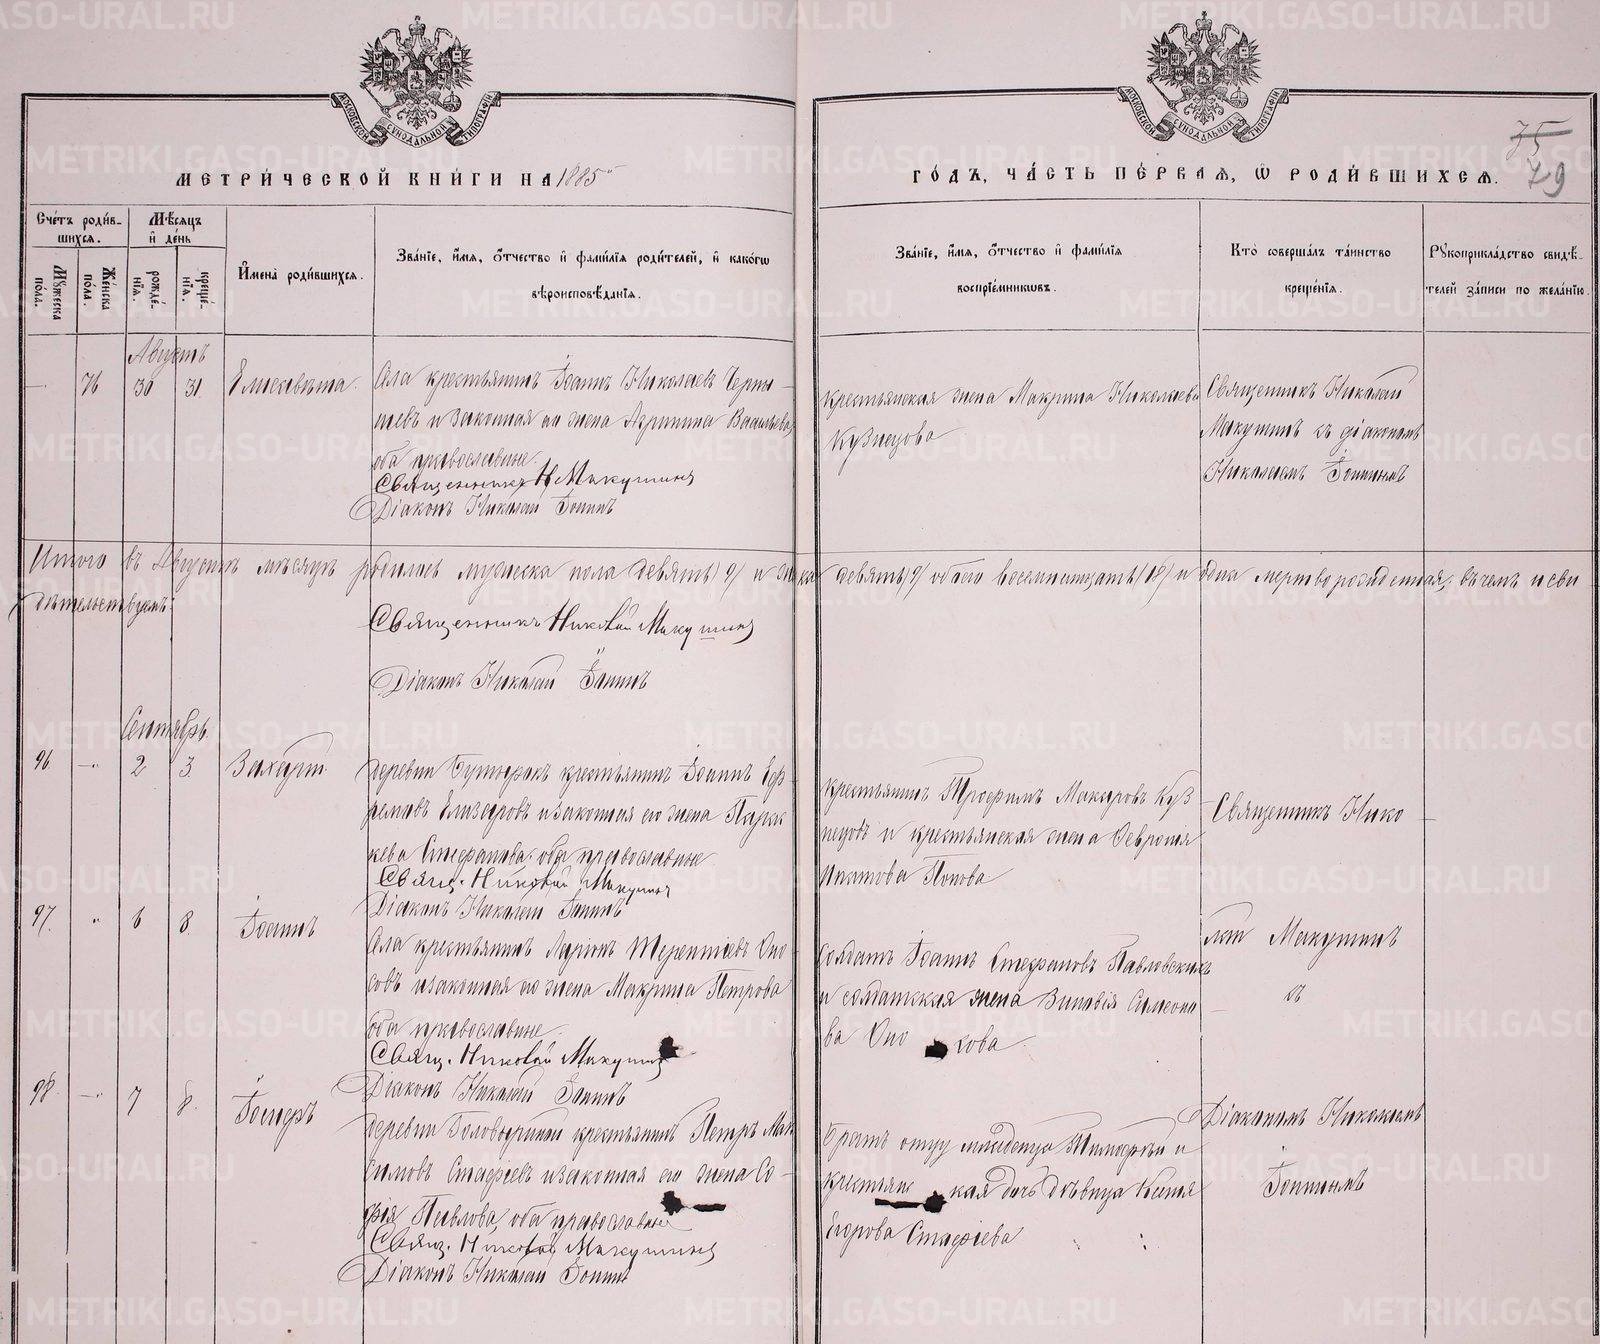 МЕТРИ́ЧЕСКОЙ КНИ́ГИ НА 1885
ГО́ДЪ, ЧА́СТЬ ПЕ́РВАЯ, Ѡ҆ РОДИ́ВШИХСЯ.
75
79
Сче́тъ роди́в-
шихся.
Мѣ́сяцъ
и҆ де́нь
Мꙋ́жеска
по́ла.
Же́нска
по́ла.
рожде́-
нїя.
креще́-
нїя.
И҆мена̀ роди́вшихся.
Зва́нїе, и҆́мя, о҆́тчество и҆ фами́лїя роди́телей, и҆ како́гѡ
вѣроисповѣ́данїя.
Зва́нїе, и҆́мя, о҆́тчество и҆ фами́лїя
воспрїе́мникѡвъ.
Кто̀ соверша́лъ та́инство
креще́нїя.
Рꙋкоприкла́дство свидѣ́-
телей за́писи по жела́нїю.
Августъ
— 76 30 31 Елисавета.
Села крестьянинъ Іоаннъ Николаевъ Черны-
шевъ и законная его жена Агрипина Васильева,
оба православные.
Священникъ Н. Макушинъ
Діаконъ Николай Іонинъ
крестьянская жена Макрина Николаева
Кузнецова
Священникъ Николай
Макушинъ съ діакономъ
Николаемъ Іонинымъ
Итого въ Августѣ мѣсяцѣ родилось мужеска пола девять (9) и женска девять (9) обоего восемнадцать (18) и одна мертворожденная; въ чемъ и сви-
дѣтельствуемъ:
Священникъ Николай Макушинъ
Діаконъ Николай Іонинъ
Сентябрь.
96. — 2 3. Захарія.
деревни крестьянинъ Іоаннъ Еф-
ремовъ Елизаровъ и законная его жена Параск-
кева Стефанова, оба православные
Свящ. Николай Макушинъ
Діаконъ Николай Іонинъ
крестьянинъ Трофимъ Макаровъ Куз-
нецовъ и крестьянская жена Февронія
Ипатова Попова
Священникъ Нико-
97. 6 8. Іоаннъ
Села крестьянинъ Ларіонъ Терентіевъ Оно-
совъ и законная его жена Макрина Петрова
оба православные.
Свящ. Николай Макушинъ
Діаконъ Николай Іонинъ
Солдатъ Іоаннъ Стефановъ Павловскихъ
и солдатская жена Зиновія Симеоно-
ва Оно кова
лай Макушинъ
съ
98. — 7 8. Іосифъ
деревни крестьянинъ Петръ Мак-
симовъ Стафіевъ и законная его жена Со-
фія Павлова, оба православные
Свящ. Николай Макушинъ
Діаконъ Николай Іонинъ
Братъ отцу младенца Тимофей и
крестьянс кая дочь дѣвица Ксенія
Егорова Стафіева
Діакономъ Николаемъ
Іонинымъ